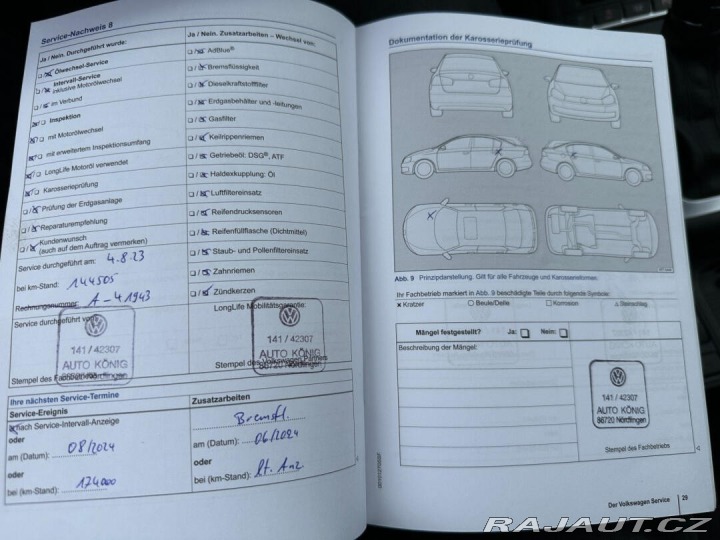 Service-Nachweis 8
Ja / Nein. Durchgeführt wurde:
Ölwechsel-Service
Intervall-Service
inklusive Motorölwechsel
im Verbund
Inspektion
mit Motorölwechsel
mit erweitertem Inspektionsumfang
LongLife Motoröl verwendet
Karosserieprüfung
Prüfung der Erdgasanlage
Reparaturempfehlung
Kundenwunsch
(auch auf dem Auftrag vermerken)
Service durchgeführt am: 4.8.23
bei km-Stand: 144505
Rechnungsnummer: A-41943
Service durchgeführt von:
141 / 42307
AUTO KÖNIG
Stempel des Fachbetriebs
Ja / Nein. Zusatzarbeiten – Wechsel von:
AdBlue®
Bremsflüssigkeit
Dieselkraftstofffilter
Erdgasbehälter und -leitungen
Gasfilter
Keilrippenriemen
Getriebeöl: DSG®, ATF
Haldexkupplung: Öl
Luftfiltereinsatz
Reifendrucksensoren
Reifenfüllflasche (Dichtmittel)
Staub- und Pollenfiltereinsatz
Zahnriemen
Zündkerzen
LongLife Mobilitätsgarantie:
141 / 42307
AUTO KÖNIG
86720 Nördlingen
Ihre nächsten Service-Termine
Service-Ereignis
nach Service-Intervall-Anzeige
oder
am (Datum): 08/2024
oder
bei (km-Stand): 174000
Zusatzarbeiten
Bremsfl.
am (Datum): 06/2024
oder
bei (km-Stand): lt. Anz.
Dokumentation der Karosserieprüfung
Abb. 9 Prinzipdarstellung. Gilt für alle Fahrzeuge und Karosserieformen.
Ihr Fachbetrieb markiert in Abb. 9 beschädigte Teile durch folgende Symbole:
× Kratzer ○ Beule/Delle □ Korrosion △ Steinschlag
Mängel festgestellt? Ja: Nein:
Beschreibung der Mängel:
141 / 42307
AUTO KÖNIG
86720 Nördlingen
Stempel des Fachbetriebs
Der Volkswagen Service 29
RAJAUT.CZ